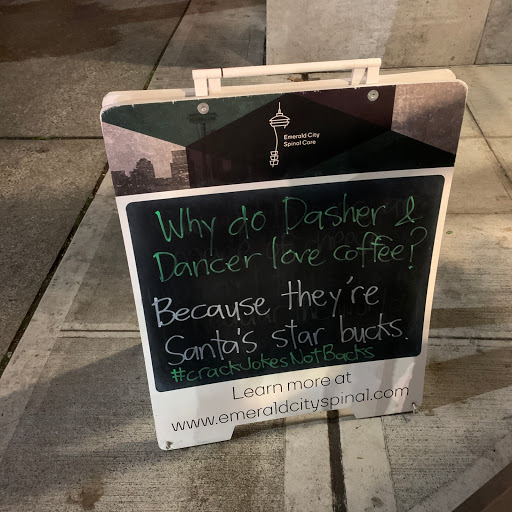 Emerald City
Spinal Care
Why do Dasher &
Dancer love coffee?
Because they're
Santa's star bucks.
#crackJokesNotBacks
Learn more at
www.emeraldcityspinal.com